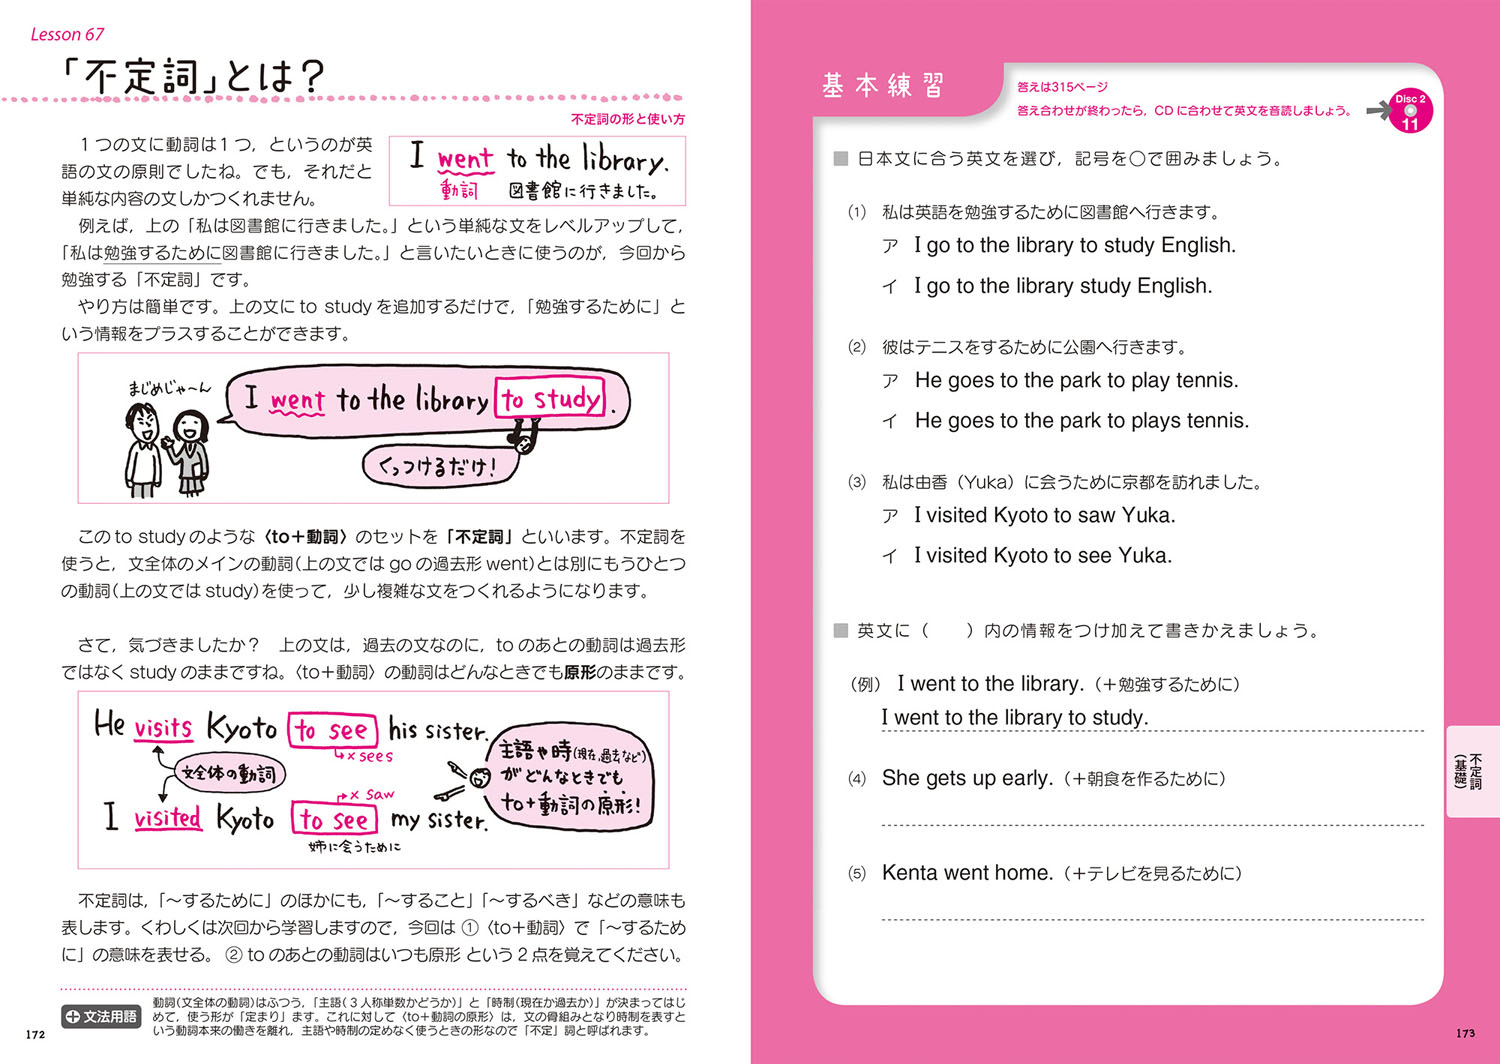 Lesson 67
「不定詞」とは？
不定詞の形と使い方
１つの文に動詞は１つ，というのが英
語の文の原則でしたね。でも，それだと
単純な内容の文しかつくれません。
I went to the library.
動詞 図書館に行きました。
例えば，上の「私は図書館に行きました。」という単純な文をレベルアップして，
「私は勉強するために図書館に行きました。」と言いたいときに使うのが，今回から
勉強する「不定詞」です。
やり方は簡単です。上の文に to study を追加するだけで，「勉強するために」と
いう情報をプラスすることができます。
まじめじゃ〜ん
I went to the library to study.
くっつけるだけ！
この to study のような〈to＋動詞〉のセットを「不定詞」といいます。不定詞を
使うと，文全体のメインの動詞（上の文では go の過去形 went）とは別にもうひとつ
の動詞（上の文では study）を使って，少し複雑な文をつくれるようになります。
さて，気づきましたか？　上の文は，過去の文なのに，to のあとの動詞は過去形
ではなく study のままですね。〈to＋動詞〉の動詞はどんなときでも原形のままです。
He visits Kyoto to see his sister.
× sees
文全体の動詞
× saw
I visited Kyoto to see my sister.
姉に会うために
主語や時（現在，過去など）
がどんなときでも
to＋動詞の原形！
不定詞は，「〜するために」のほかにも，「〜すること」「〜するべき」などの意味も
表します。くわしくは次回から学習しますので，今回は ①〈to＋動詞〉で「〜するため
に」の意味を表せる。 ② to のあとの動詞はいつも原形 という２点を覚えてください。
＋文法用語
動詞（文全体の動詞）はふつう，「主語（３人称単数かどうか）」と「時制（現在か過去か）」が決まってはじ
めて，使う形が「定まり」ます。これに対して〈to＋動詞の原形〉は，文の骨組みとなり時制を表すと
いう動詞本来の働きを離れ，主語や時制の定めなく使うときの形なので「不定」詞と呼ばれます。
172
基本練習
答えは315ページ
答え合わせが終わったら，CD に合わせて英文を音読しましょう。
Disc 2
11
■ 日本文に合う英文を選び，記号を○で囲みましょう。
(1) 私は英語を勉強するために図書館へ行きます。
ア I go to the library to study English.
イ I go to the library study English.
(2) 彼はテニスをするために公園へ行きます。
ア He goes to the park to play tennis.
イ He goes to the park to plays tennis.
(3) 私は由香（Yuka）に会うために京都を訪れました。
ア I visited Kyoto to saw Yuka.
イ I visited Kyoto to see Yuka.
■ 英文に（　　）内の情報をつけ加えて書きかえましょう。
（例） I went to the library.（＋勉強するために）
I went to the library to study.
(4) She gets up early.（＋朝食を作るために）
(5) Kenta went home.（＋テレビを見るために）
不定詞
（基礎）
173